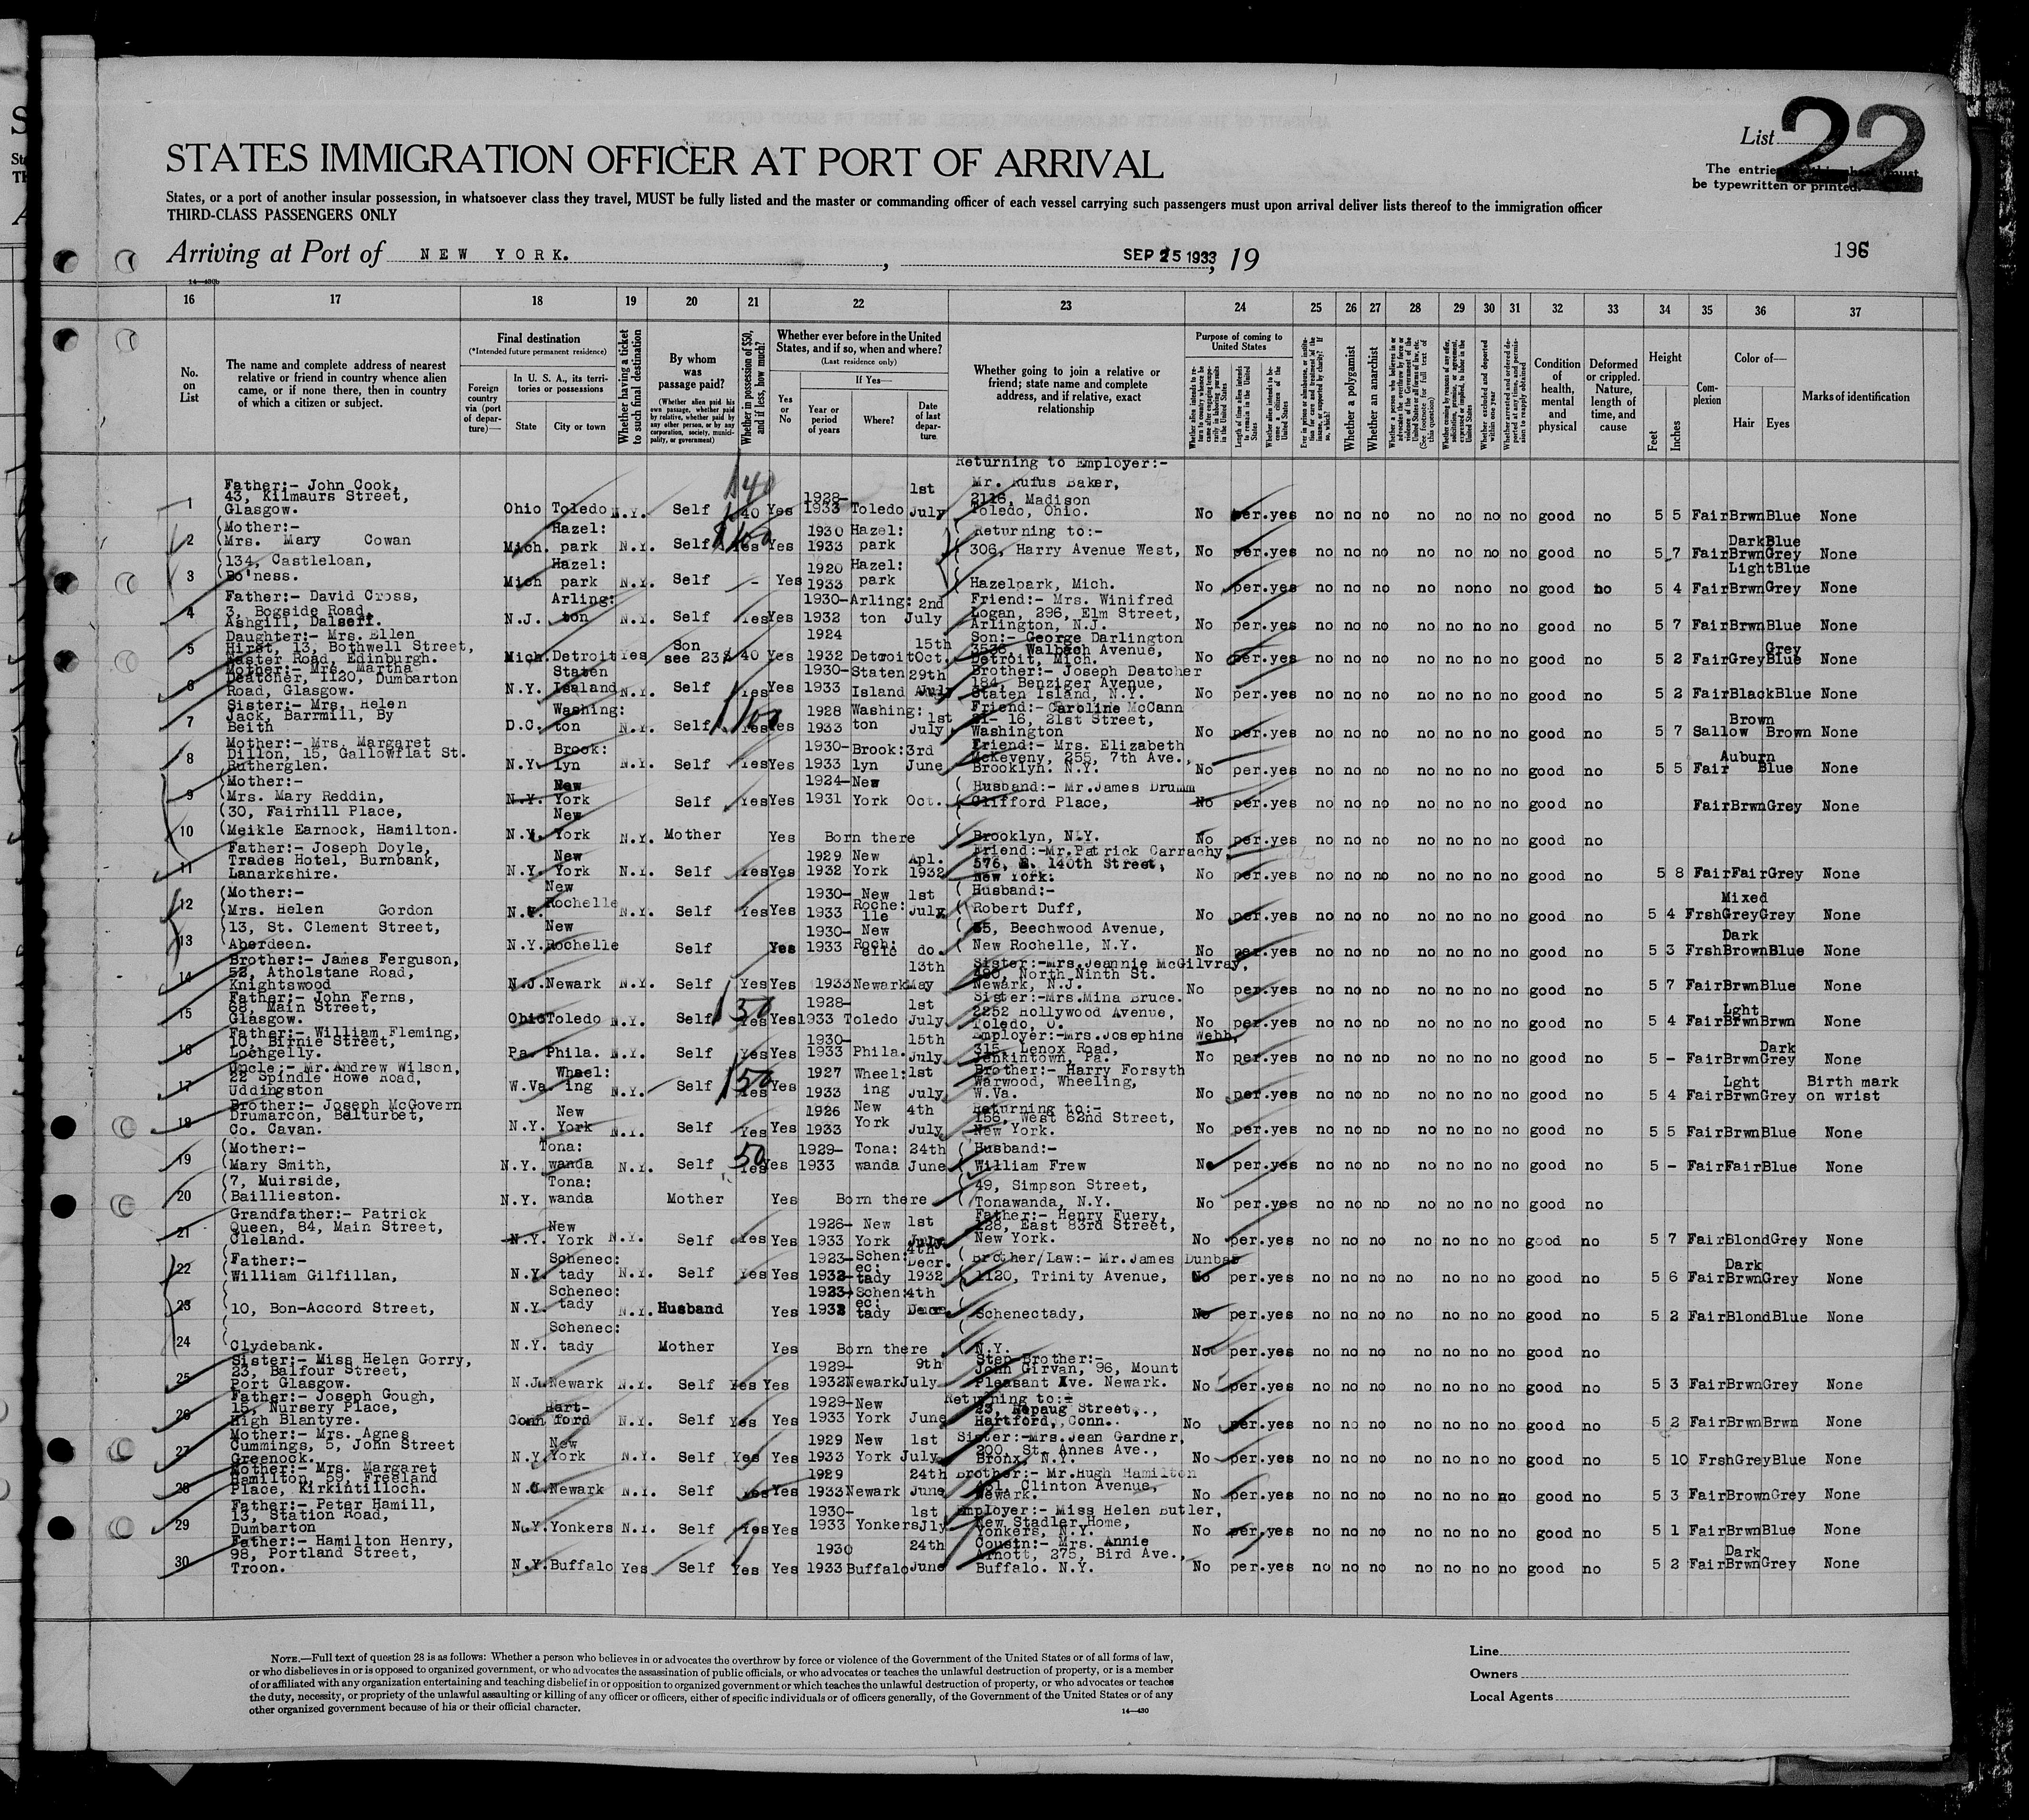 List 22
The entries must
be typewritten or printed.
STATES IMMIGRATION OFFICER AT PORT OF ARRIVAL
States, or a port of another insular possession, in whatsoever class they travel, MUST be fully listed and the master or commanding officer of each vessel carrying such passengers must upon arrival deliver lists thereof to the immigration officer
THIRD-CLASS PASSENGERS ONLY
Arriving at Port of NEW YORK. , SEP 25 1933, 19
196
16 17 18 19 20 21 22 23 24 25 26 27 28 29 30 31 32 33 34 35 36 37
No. on List
The name and complete address of nearest relative or friend in country whence alien came, or if none there, then in country of which a citizen or subject.
Final destination
(*Intended future permanent residence)
Foreign country via (port of departure)—
In U. S. A., its territories or possessions
State
City or town
Whether having a ticket to such final destination
By whom was passage paid?
(Whether alien paid his own passage, whether paid by relative, whether paid by any other person, or by any corporation, society, municipality, or government)
Whether in possession of $50, and if less, how much?
Whether ever before in the United States, and if so, when and where?
(Last residence only)
Yes or No
If Yes—
Year or period of years
Where?
Date of last departure
Whether going to join a relative or friend; state name and complete address, and if relative, exact relationship
Purpose of coming to United States
Length of time alien intends to remain in the United States
Whether alien intends to become a citizen of the United States
Whether a polygamist
Whether an anarchist
Condition of health, mental and physical
Deformed or crippled. Nature, length of time, and cause
Height
Feet
Inches
Complexion
Color of—
Hair
Eyes
Marks of identification
1 Father:- John Cook, 43, Kilmaurs Street, Glasgow. Ohio Toledo N.Y. Self 40 Yes 1928-1933 Toledo 1st July Returning to Employer:- Mr. Rufus Baker, 2116, Madison Toledo, Ohio. No per. yes no no no no no no no good no 5 5 Fair Brwn Blue None
2 (Mother:- (Mrs. Mary Cowan Mich. Hazel: park N.Y. Self Yes Yes 1930 1933 Hazel: park (Returning to:- (306, Harry Avenue West, No per. yes no no no no no no no good no 5 7 Fair Dark Brwn Blue Grey None
3 (134, Castleloan, (Bo'ness. Mich Hazel: park N.Y. Self - Yes 1920 1933 Hazel: park (Hazelpark, Mich. No per. yes no no no no no no no good no 5 4 Fair Light Brwn Blue Grey None
4 Father:- David Cross, 3, Bogside Road, Ashgill, Dalserf. N.J. Arling: ton N.Y. Self Yes Yes 1930-1932 Arling: ton 2nd July Friend:- Mrs. Winifred Logan, 296, Elm Street, Arlington, N.J. No per. yes no no no no no no no good no 5 7 Fair Brwn Blue None
5 Daughter:- Mrs. Ellen Hirst, 13, Bothwell Street, Easter Road, Edinburgh. Mich. Detroit Yes Son see 23 40 Yes 1924 1932 Detroit 15th Oct. Son:- George Darlington 3538, Walbach Avenue, Detroit, Mich. No per. yes no no no no no no no good no 5 2 Fair Grey Grey Blue None
6 Mother:- Mrs. Martha Deatcher, 1120, Dumbarton Road, Glasgow. N.Y. Staten Iseland N.Y. Self Yes Yes 1930-1933 Staten Island 29th July Brother:- Joseph Deatcher 184, Benziger Avenue, Staten Island, N.Y. No per. yes no no no no no no no good no 5 2 Fair Black Blue None
7 Sister:- Mrs. Helen Jack, Barrmill, By Beith D.C. Washing: ton N.Y. Self Yes Yes 1928 1933 Washing: ton 1st July Friend:- Caroline McCann 16, 21st Street, Washington No per. yes no no no no no no no good no 5 7 Sallow Brown Brown None
8 Mother:- Mrs. Margaret Dillon, 15, Gallowflat St. Rutherglen. N.Y. Brook: lyn N.Y. Self Yes Yes 1930-1933 Brook: lyn 3rd June Friend:- Mrs. Elizabeth McKeveny, 255, 7th Ave., Brooklyn. N.Y. No per. yes no no no no no no no good no 5 5 Fair Auburn Blue None
9 (Mother:- (Mrs. Mary Reddin, (30, Fairhill Place, N.Y. New York Self Yes Yes 1924-1931 New York Oct. (Husband:- Mr. James Drumm (Clifford Place, No per. yes no no no no no no no good no Fair Brwn Grey None
10 (Meikle Earnock, Hamilton. N.Y. New York N.Y. Mother Yes Born there (Brooklyn, N.Y. No per. yes no no no no no no no good no
11 Father:- Joseph Doyle, Trades Hotel, Burnbank, Lanarkshire. N.Y. New York N.Y. Self Yes Yes 1929 1932 New York Apl. 1932 Friend:- Mr. Patrick Carrachy, 576, E. 140th Street, New York. No per. yes no no no no no no no good no 5 8 Fair Fair Grey None
12 (Mother:- (Mrs. Helen Gordon N.Y. New Rochelle N.Y. Self Yes Yes 1930-1933 New Roche: lle 1st July (Husband:- (Robert Duff, No per. yes no no no no no no no good no 5 4 Frsh Mixed Grey Grey None
13 (13, St. Clement Street, (Aberdeen. N.Y. New Rochelle Self Yes 1930-1933 New Roch: elle do. (35, Beechwood Avenue, (New Rochelle, N.Y. No per. yes no no no no no no no good no 5 3 Frsh Dark Brown Blue None
14 Brother:- James Ferguson, 52, Atholstane Road, Knightswood N.J. Newark N.Y. Self Yes Yes 1933 Newark 13th May Sister:- Mrs. Jeannie McGilvray, 490, North Ninth St. Newark, N.J. No per. yes no no no no no no no good no 5 7 Fair Brwn Blue None
15 Father:- John Ferns, 68, Main Street, Glasgow. Ohio Toledo N.Y. Self Yes Yes 1928-1933 Toledo 1st July. Sister:- Mrs. Mina Bruce. 2252 Hollywood Avenue, Toledo, O. No per. yes no no no no no no no good no 5 4 Fair Lght Brwn Brwn None
16 Father:- William Fleming, 10, Birnie Street, Lochgelly. Pa. Phila. N.Y. Self Yes Yes 1930-1933 Phila. 15th July Employer:- Mrs. Josephine Webb, 315, Lenox Road, Jenkintown, Pa. No per. yes no no no no no no no good no 5 - Fair Brwn Dark Grey None
17 Uncle:- Mr. Andrew Wilson, 22 Spindle Howe Road, Uddingston W.Va. Wheel: ing N.Y. Self 50 Yes Yes 1927 1933 Wheel: ing 1st July Brother:- Harry Forsyth Warwood, Wheeling, W.Va. No per. yes no no no no no no no good no 5 4 Fair Lght Brwn Grey Birth mark on wrist
18 Brother:- Joseph McGovern Drumarcon, Belturbet, Co. Cavan. N.Y. New York N.Y. Self Yes Yes 1926 1933 New York 4th July Returning to:- 156, West 62nd Street, New York. No per. yes no no no no no no no good no 5 5 Fair Brwn Blue None
19 (Mother:- (Mary Smith, N.Y. Tona: wanda N.Y. Self 50 Yes Yes 1929-1933 Tona: wanda 24th June (Husband:- (William Frew No per. yes no no no no no no no good no 5 - Fair Fair Blue None
20 (7, Muirside, (Baillieston. N.Y. Tona: wanda Mother Yes Born there (49, Simpson Street, (Tonawanda, N.Y. No per. yes no no no no no no no good no
21 Grandfather:- Patrick Queen, 84, Main Street, Cleland. N.Y. New York N.Y. Self Yes Yes 1926-1933 New York 1st July Father:- Henry Fuery, 128, East 83rd Street, New York. No per. yes no no no no no no no good no 5 7 Fair Blond Grey None
22 (Father:- (William Gilfillan, N.Y. Schenec: tady N.Y. Self Yes Yes 1923-1932 Schen: ec: tady 4th Decr. 1932 (Brother/Law:- Mr. James Dunbar (1120, Trinity Avenue, No per. yes no no no no no no no good no 5 6 Fair Dark Brwn Grey None
23 (10, Bon-Accord Street, N.Y. Schenec: tady N.Y. Husband Yes 1923-1932 Schen: ec: tady 4th Decr (Schenectady, No per. yes no no no no no no no good no 5 2 Fair Blond Blue None
24 (Clydebank. N.Y. Schenec: tady Mother Yes Born there (N.Y. No per. yes no no no no no no no good no
25 Sister:- Miss Helen Gorry, 23, Balfour Street, Port Glasgow. N.J. Newark N.Y. Self Yes Yes 1929-1932 Newark 9th July. Step Brother:- John Girvan, 96, Mount Pleasant Ave. Newark. No per. yes no no no no no no no good no 5 3 Fair Brwn Grey None
26 Father:- Joseph Gough, 15, Nursery Place, High Blantyre. Conn Hart-ford N.Y. Self Yes Yes 1929-1933 New York June Returning to:- 23, Street, Hartford, Conn. No per. yes no no no no no no no good no 5 2 Fair Brwn Brwn None
27 Mother:- Mrs. Agnes Cummings, 5, John Street Greenock. N.Y. New York N.Y. Self Yes Yes 1929 1933 New York 1st July Sister:- Mrs. Jean Gardner, 200, St. Annes Ave., Bronx, N.Y. No per. yes no no no no no no no good no 5 10 Frsh Grey Blue None
28 Mother:- Mrs. Margaret Hamilton, 59, Freeland Place, Kirkintilloch. N.J. Newark N.Y. Self Yes Yes 1929 1933 Newark 24th June Brother:- Mr. Hugh Hamilton Clinton Avenue, Newark. No per. yes no no no no no no no good no 5 3 Fair Brown Grey None
29 Father:- Peter Hamill, 13, Station Road, Dumbarton N.Y. Yonkers N.Y. Self Yes Yes 1930-1933 Yonkers 1st Jly Employer:- Miss Helen Butler, New Stadler Home, Yonkers, N.Y. No per. yes no no no no no no no good no 5 1 Fair Brwn Blue None
30 Father:- Hamilton Henry, 98, Portland Street, Troon. N.Y. Buffalo Yes Self Yes Yes 1930 1933 Buffalo 24th June Cousin:- Mrs. Annie Arnott, 275, Bird Ave., Buffalo. N.Y. No per. yes no no no no no no no good no 5 2 Fair Dark Brwn Grey None
NOTE.—Full text of question 28 is as follows: Whether a person who believes in or advocates the overthrow by force or violence of the Government of the United States or of all forms of law,
or who disbelieves in or is opposed to organized government, or who advocates the assassination of public officials, or who advocates or teaches the unlawful destruction of property, or is a member
of or affiliated with any organization entertaining and teaching disbelief in or opposition to organized government or which teaches the unlawful destruction of property, or who advocates or teaches
the duty, necessity, or propriety of the unlawful assaulting or killing of any officer or officers, either of specific individuals or of officers generally, of the Government of the United States or of any
other organized government because of his or their official character.
14—430
Line
Owners
Local Agents